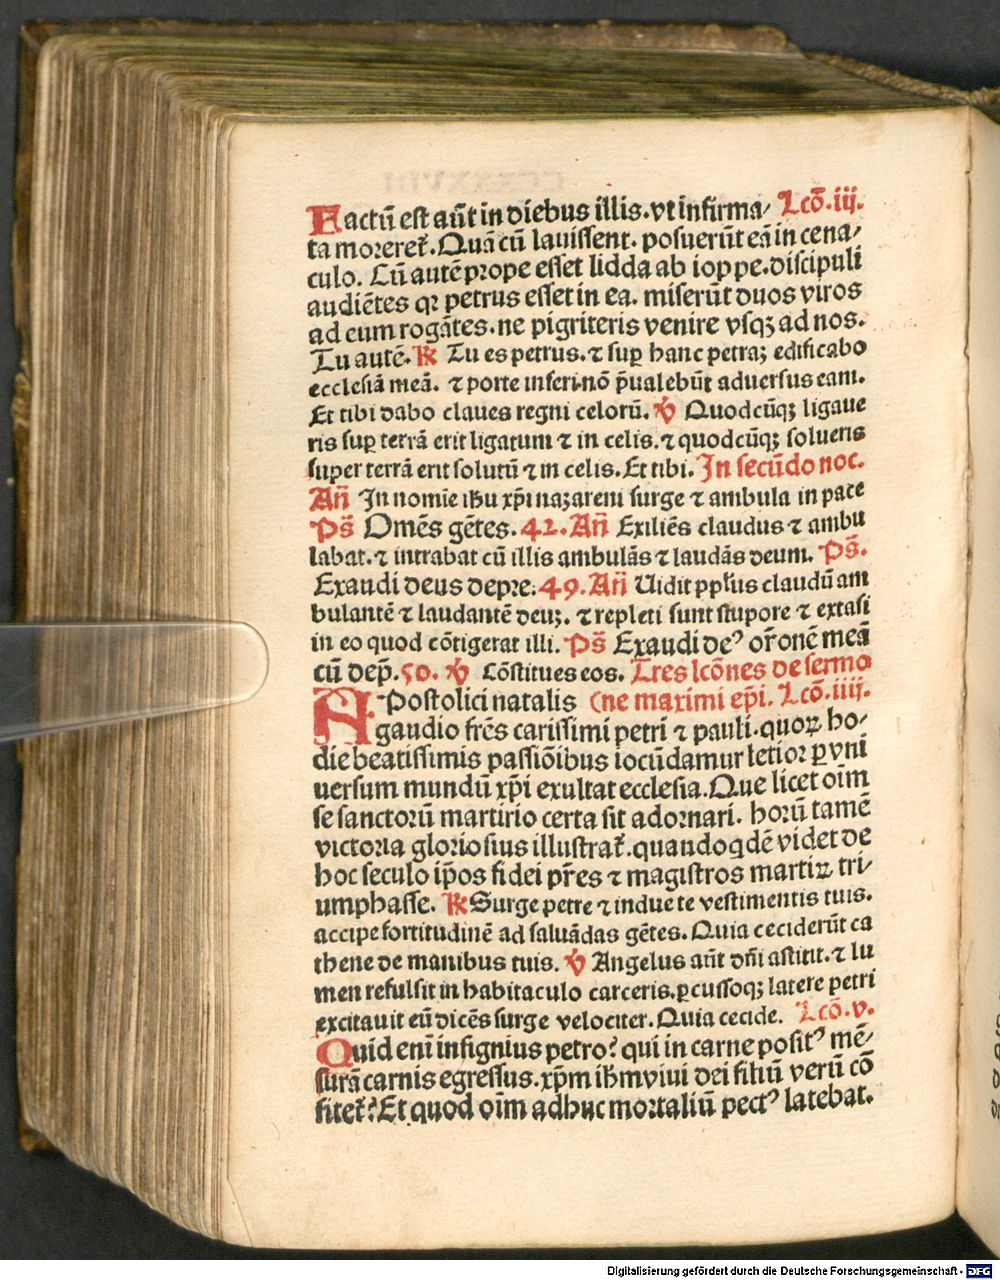 Factū est aūt in diebus illis. vt infirma/ Lcō. iii.
ta moreret᷑. Quā cū lauissent. posuerūt eā in cena/
culo. Cū autē prope esset lidda ab ioppe. discipuli
audiētes qꝛ petrus esset in ea. miserūt duos viros
ad eum rogātes. ne pigriteris venire vsqꝫ ad nos.
Tu autē. ℟ Tu es petrus. ⁊ suꝑ hanc petraꝫ edificabo
ecclesiā meā. ⁊ porte inferi nō p̄ualebūt aduersus eam.
Et tibi dabo claues regni celorū. ℣ Quodcūqꝫ ligaue
ris suꝑ terrā erit ligatum ⁊ in celis. ⁊ quodcūqꝫ solueris
super terrā erit solutū ⁊ in celis. Et tibi. In secūdo noc.
An̄ In nomīe ihū xp̄i nazareni surge ⁊ ambula in pace
Ps̄ Omēs gētes. 42. An̄ Exiliēs claudus ⁊ ambu
labat. ⁊ intrabat cū illis ambulās ⁊ laudās deum. Ps̄.
Exaudi deus depre. 49. An̄ Uidit pplꝰus claudū am
bulantē ⁊ laudantē deuꝫ. ⁊ repleti sunt stupore ⁊ extasi
in eo quod cōtigerat illi. Ps̄ Exaudi deꝰ or̄onē meā
cū dep̄. 50. ℣ Cōstitues eos. Tres lcōnes de sermo
APostolici natalis (ne maximi ep̄i. Lcō. iiii.
gaudio frēs carissimi petri ⁊ pauli. quoꝝ ho/
die beatissimis passiōibus iocūdamur letior ꝑ vni
uersum mundū xp̄i exultat ecclesia. Que licet oīm
se sanctorū martirio certa sit adornari. horū tamē
victoria gloriosius illustrat᷑. quandoqdē videt de
hoc seculo ip̄os fidei pr̄es ⁊ magistros martiꝝ tri/
umphasse. ℟ Surge petre ⁊ indue te vestimentis tuis.
accipe fortitudinē ad saluādas gētes. Quia ceciderūt ca
thene de manibus tuis. ℣ Angelus aūt dn̄i astitit. ⁊ lu
men refulsit in habitaculo carceris. ꝑcussoqꝫ latere petri
excitauit eū dicēs surge velociter. Quia cecide. Lcō. v.
Quid enī insignius petro? qui in carne positꝰ mē/
surā carnis egressus. xp̄m ihm viui dei filiū verū cō
fitet᷑? Et quod oīm adhuc mortaliū pectꝰ latebat.
Digitalisierung gefördert durch die Deutsche Forschungsgemeinschaft - DFG